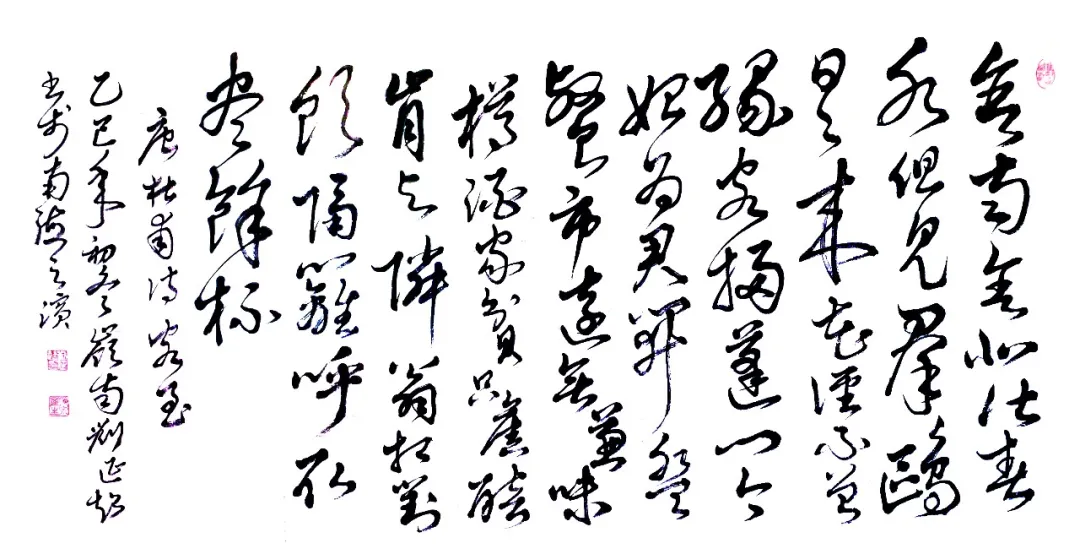 舍南舍北皆春
水但見羣鷗
日日来花徑不曾
緣客掃蓬門今
始為君開盤
飧市遠無兼味
樽酒家貧只舊醅
肯与隣翁相對
飲隔籬呼取
尽餘杯
唐杜甫詩客至
乙巳年初冬嶺南劉
书於南之濱